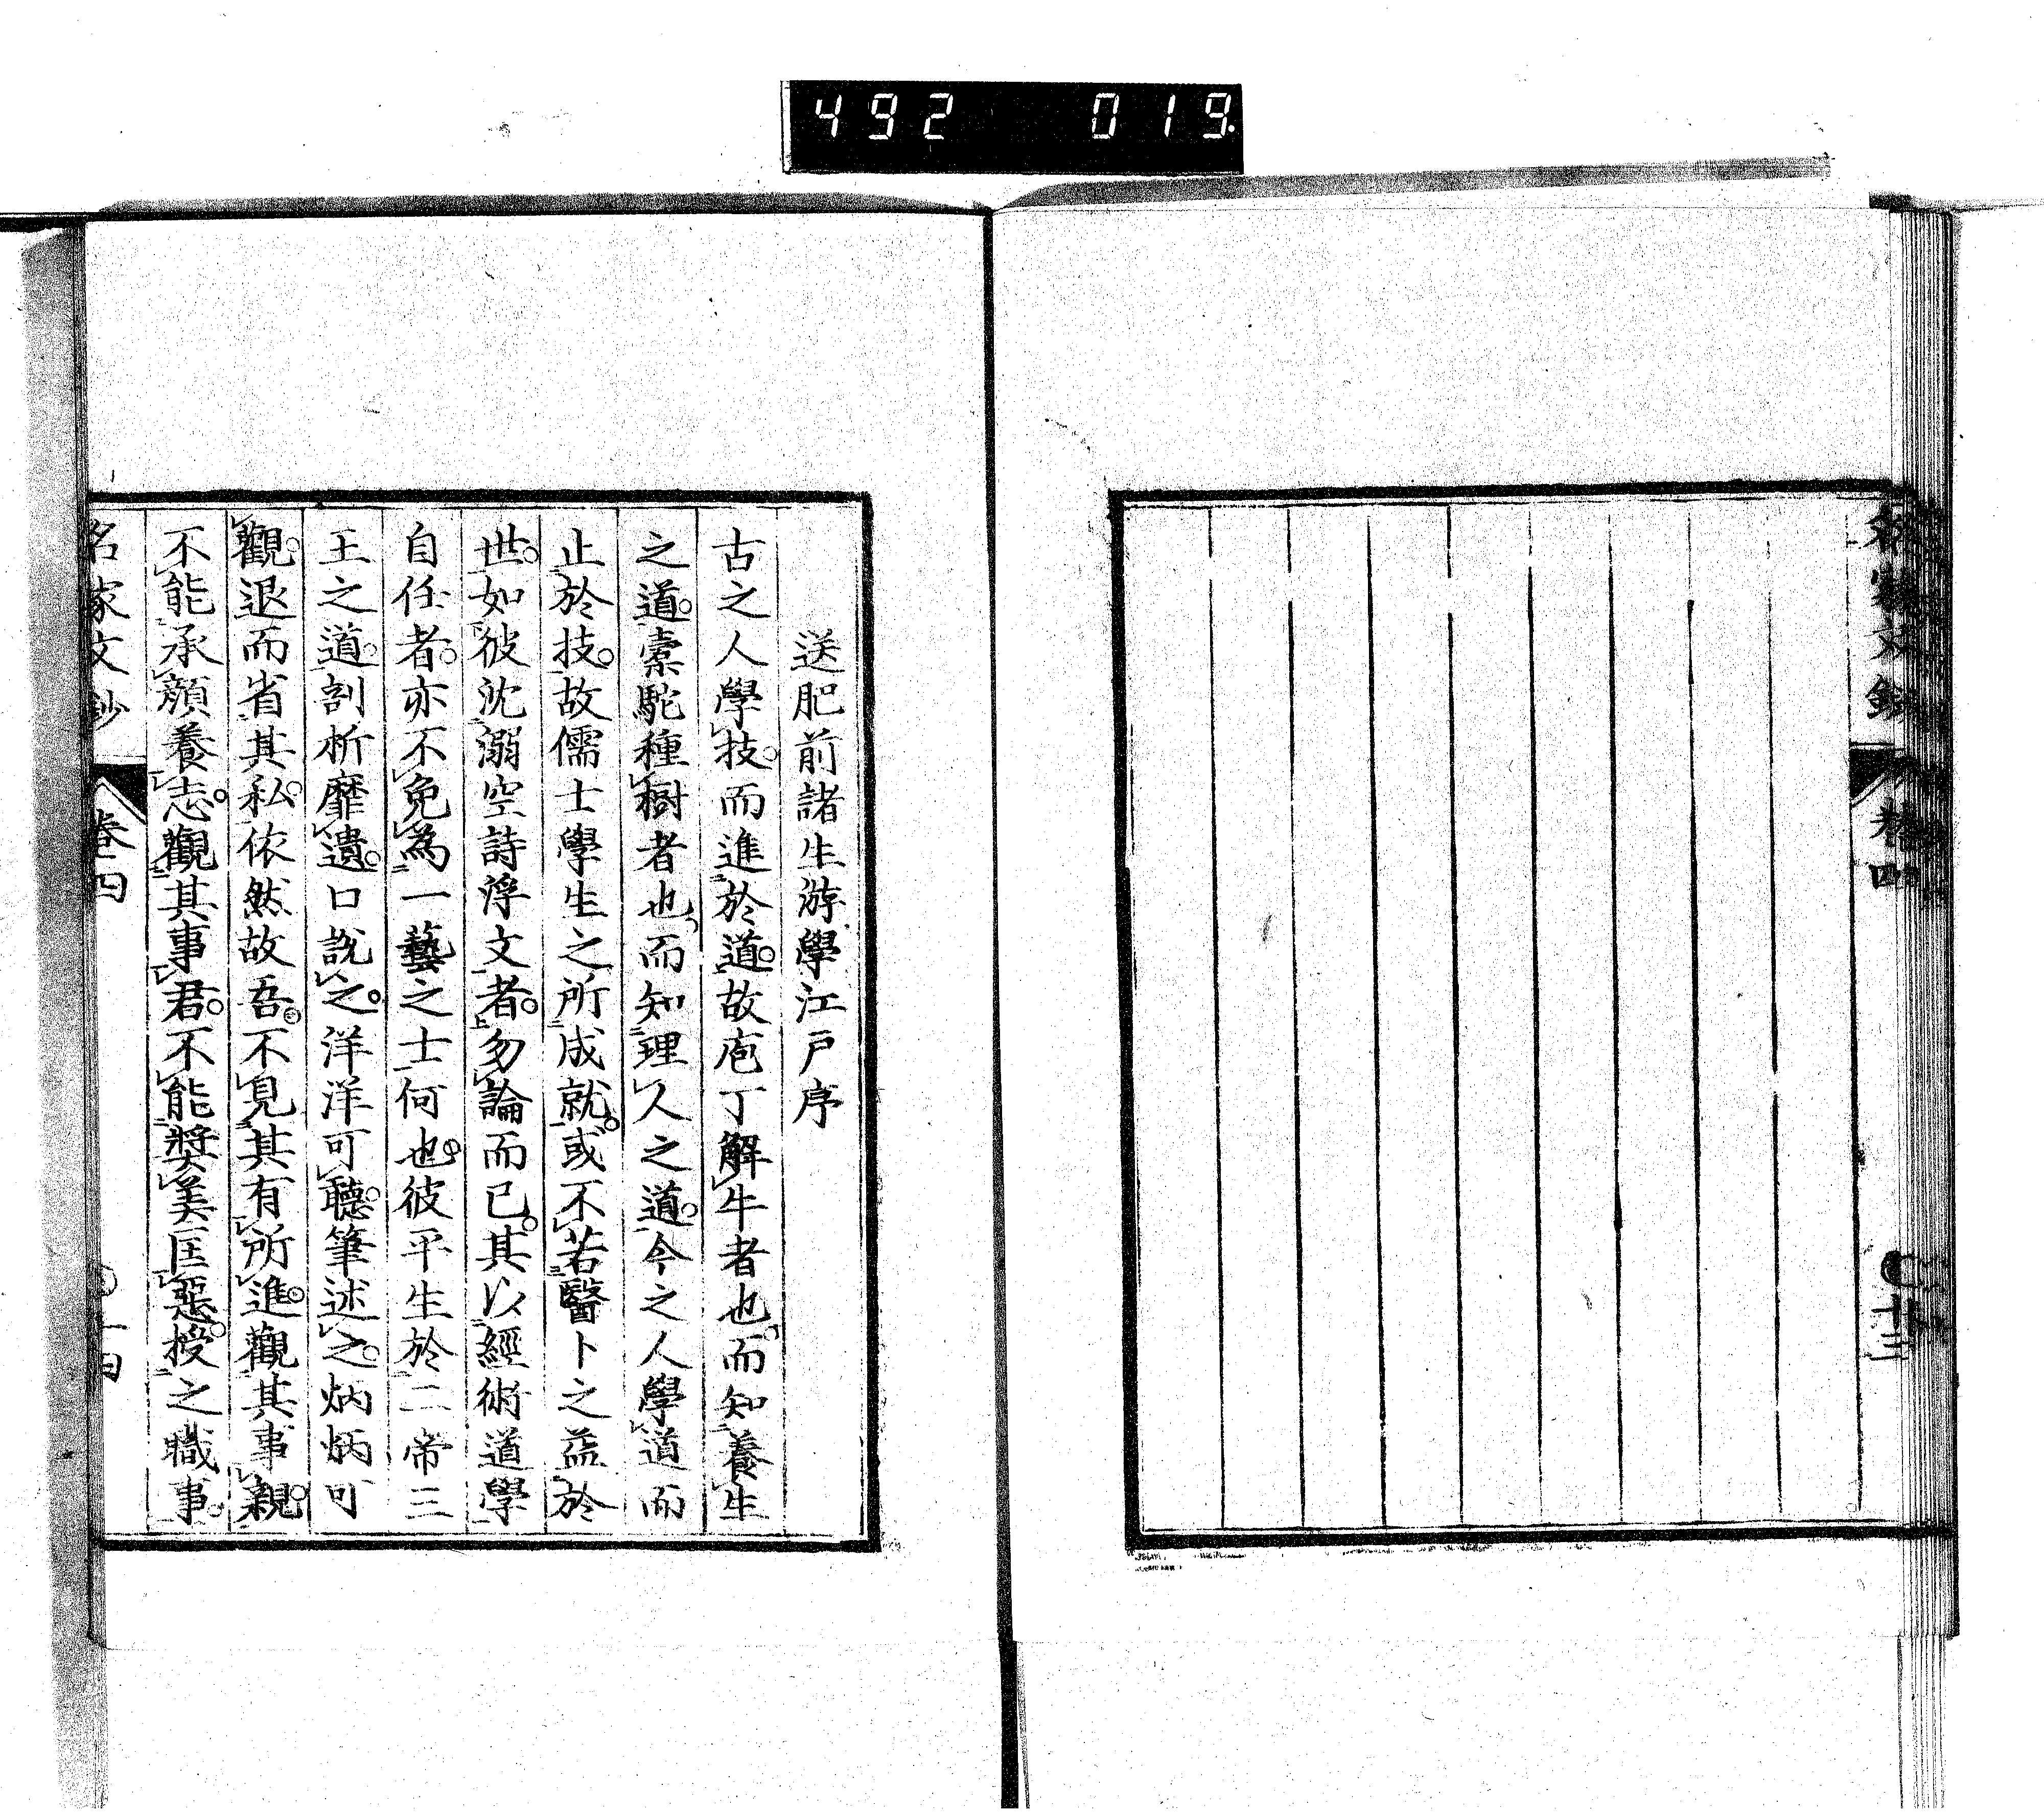 492 019
送肥前諸生游學江戸序
古之人學技而進於道故庖丁解牛者也而知養生
之道橐駝種樹者也而知理人之道今之人學道而
止於技故儒士學生之所成就或不若醫卜之益於
世如彼沈溺空詩浮文者勿論而已其以經術道學
自任者亦不免為一藝之士何也彼平生於二帝三
王之道剖析靡遺口說之洋洋可聽筆述之炳炳可
觀退而省其私依然故吾不見其有所進觀其事親
不能承顏養志觀其事君不能奬美匡惡授之職事
名家文鈔 卷四